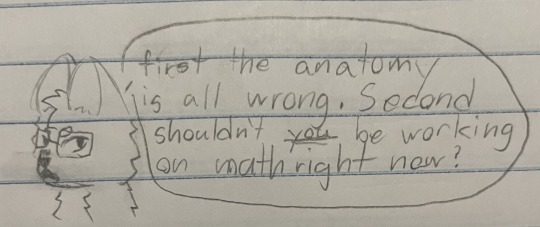 first the anatomy
is all wrong. Second
shouldn't you be working
on math right now?